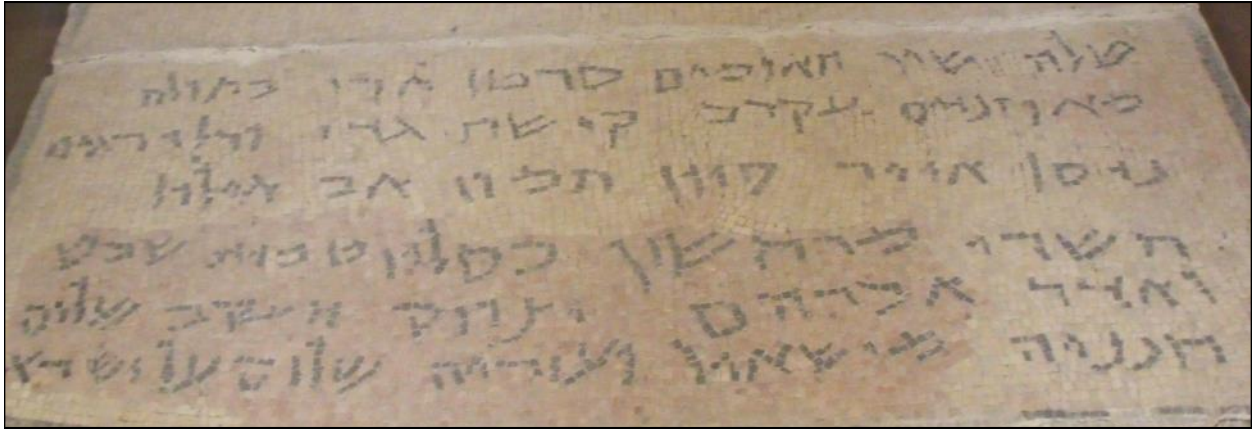 טלה שור תאומים סרטן ארי בתולה
מאוזניים עקרב קישת גדי ודלי דגים
ניסן אייר סיון תמוז אב אילול
תשרי מרחשון כסליו טבית שבט
ואדר אברהם יצחק ויעקב שלום
חנניה מישאיל ועזריה שלום על ישרא